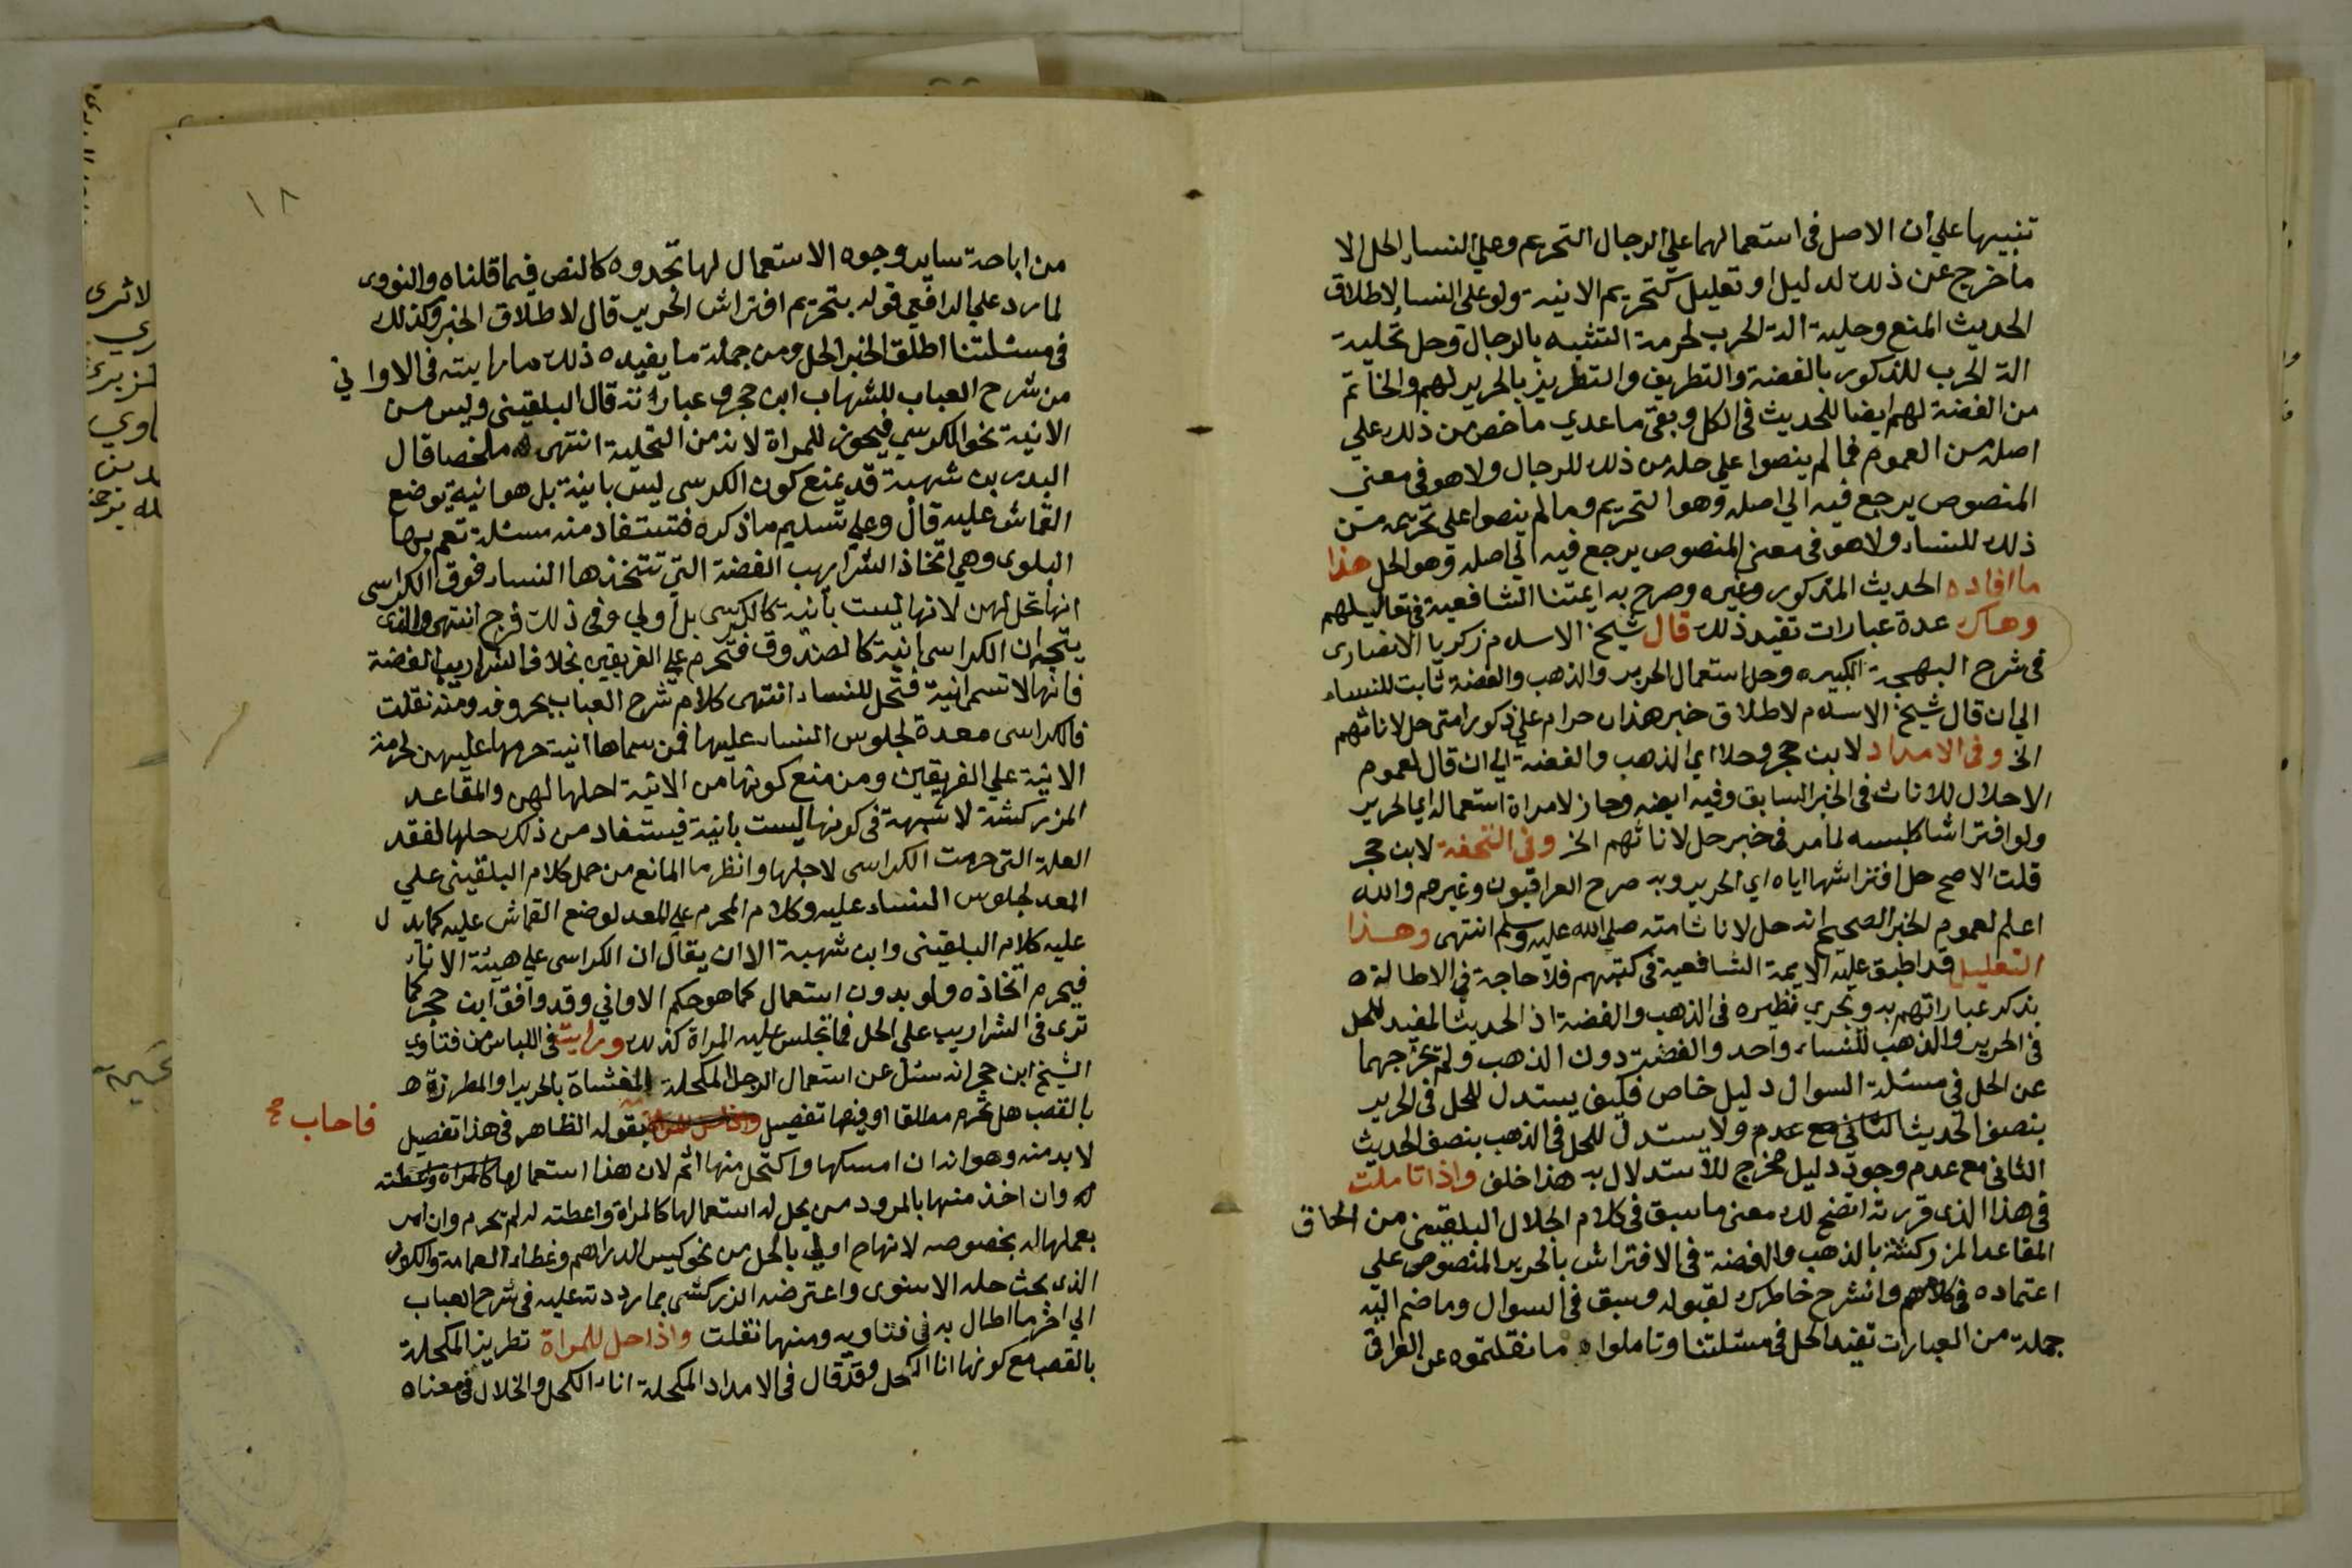 تنبيها علي ان الاصل في استعمالهما علي الرجال التحريم وعلي النساء الحل الا
ما خرج عن ذلك لدليل او تعليل كتحريم الانية ولو على النساء لاطلاق
الحديث المنع وحلية الة الحرب لحرمة التشبه بالرجال وحل تحلية
الة الحرب للذكور بالفضة والتطريف والتطريز بالحرير لهم والخاتم
من الفضة لهم ايضا للحديث في الكل وبقى ما عدي ما خص من ذلك علي
اصله من العموم فما لم ينصوا علي حله من ذلك للرجال ولا هو في معنى
المنصوص يرجع فيه الي اصله وهو التحريم وما لم ينصوا على تحريمه من
ذلك للنساء ولا هو في معنى المنصوص يرجع فيه الي اصله وهو الحل هذا
ما افاده الحديث المذكور وغيره وصرح به ايمتنا الشافعية في تعاليلهم
وهاك عدة عبارات تفيد ذلك قال شيخ الاسلام زكريا الانصارى
في شرح البهجة الكبير وحل استعمال الحرير والذهب والفضة ثابت للنساء
الي ان قال شيخ الاسلام لاطلاق خبر هذان حرام علي ذكور امتى حل لاناثهم
الخ وفي الامداد لابن حجر وحلا اي الذهب والفضة الي ان قال لعموم
الاحلال للاناث في الخبر السابق وفيه ايضه وجاز لامراة استعماله اي الحرير
ولو افتراشا كلبسه لما مر في خبر حل لاناثهم الخ وفي التحفة لابن حجر
قلت الاصح حل افتراشها اياه اي الحرير وبه صرح العراقيون وغيرهم والله
اعلم لعموم الخبر الصحيح انه حل لاناث امته صلي الله عليه وسلم انتهى وهذا
التعليل قد اطبق عليه الايمة الشافعية في كتبهم فلا حاجة في الاطالة
بذكر عباراتهم به ويجري نظيره في الذهب والفضة اذ الحديث المفيد للحل
في الحرير والذهب للنساء واحد والفضة دون الذهب ولم يخرجهما
عن الحل في مسئلة السوال دليل خاص فكيف يستدل للحل في الحرير
بنصف الحديث الثاني مع عدم ولا يستدل للحل في الذهب بنصف الحديث
الثاني مع عدم وجود دليل مخرج للاستدلال به هذا خلف واذا تاملت
في هذا الذى قررته اتضح لك معنى ما سبق في كلام الجلال البلقيني من الحاق
المقاعد المزركشة بالذهب والفضة في الافتراش بالحرير المنصوص على
اعتماده في كلامهم وانشرح خاطرك لقبوله وسبق في السوال وما ضم اليه
جملة من العبارات تفيد الحل في مسئلتنا وتاملوا ما نقلتموه عن العراقي
١٨
من اباحة ساير وجوه الاستعمال لها تجدوه كالنص فيما قلناه والنووى
لما رد علي الرافعي قوله بتحريم افتراش الحرير قال لاطلاق الخبر وكذلك
في مسئلتنا اطلق الخبر الحل ومن جملة ما يفيده ذلك ما رايته في الاواني
من شرح العباب للشهاب ابن حجر وعبارته قال البلقيني وليس من
الانية نحو الكرسي فيجوز للمراة لانه من التحلية انتهى ملخصا قال
البدر بن شهبة قد يمنع كون الكرسى ليس بانية بل هو انية يوضع
القماش عليه قال وعلي تسليم ما ذكره فتستفاد منه مسئلة تعم بها
البلوى وهي اتخاذ الشراريب الفضة التي تتخذها النساء فوق الكراسى
انها تحل لهن لانها ليست بانية كالكرسى بل اولي وفي ذلك فرج انتهى والذى
يتجه ان الكراسى انية كالصندوق فتحرم علي الفريقين بخلاف الشراريب الفضة
فانها لا تسمى انية فتحل للنساء انتهى كلام شرح العباب بحروفه ومنه نقلت
فالكراسى معدة لجلوس النساء عليها فمن سماها انية حرمها عليهن لحرمة
الانية علي الفريقين ومن منع كونها من الانية احلها لهن والمقاعد
المزركشة لا شبهة في كونها ليست بانية فيستفاد من ذلك حلها لفقد
العلة التي حرمت الكراسى لاجلها وانظر ما المانع من حمل كلام البلقيني علي
المعد لجلوس النساء عليه وكلام المحرم علي المعد لوضع القماش عليه كما يدل
عليه كلام البلقيني وابن شهبة الا ان يقال ان الكراسى علي هيئة الاناء
فيحرم اتخاذه ولو بدون استعمال كما هو حكم الاواني وقد وافق ابن حجر كما
ترى في الشراريب على الحل فما تجلس عليه المراة كذلك ورايت في اللباس من فتاوي
الشيخ ابن حجر انه سئل عن استعمال الرجل المكحلة المغشاة بالحرير او المطرزة
بالقصب هل تحرم مطلقا او فيها تفصيل بقوله الظاهر في هذا تفصيل
فاجاب صح
لابد منه وهو انه ان امسكها واكتحل منها اثم لان هذا استعمال لها كالمراة واعطته
له وان اخذ منها بالمرود من يحل له استعمالها كالمراة واعطته له لم يحرم وان امر
بعملها له بخصوصه لانها ح اولي بالحل من نحو كيس الدراهم وغطاء العمامة والكوز
الذى بحث حله الاسنوى واعترضه الزركشى بما رددته عليه في شرح العباب
الي اخر ما اطال به في فتاويه ومنها نقلت واذا حل للمراة تطريز المكحلة
بالقصب مع كونها انا الكحل وقد قال في الامداد المكحلة اناء الكحل والخلال في معناه